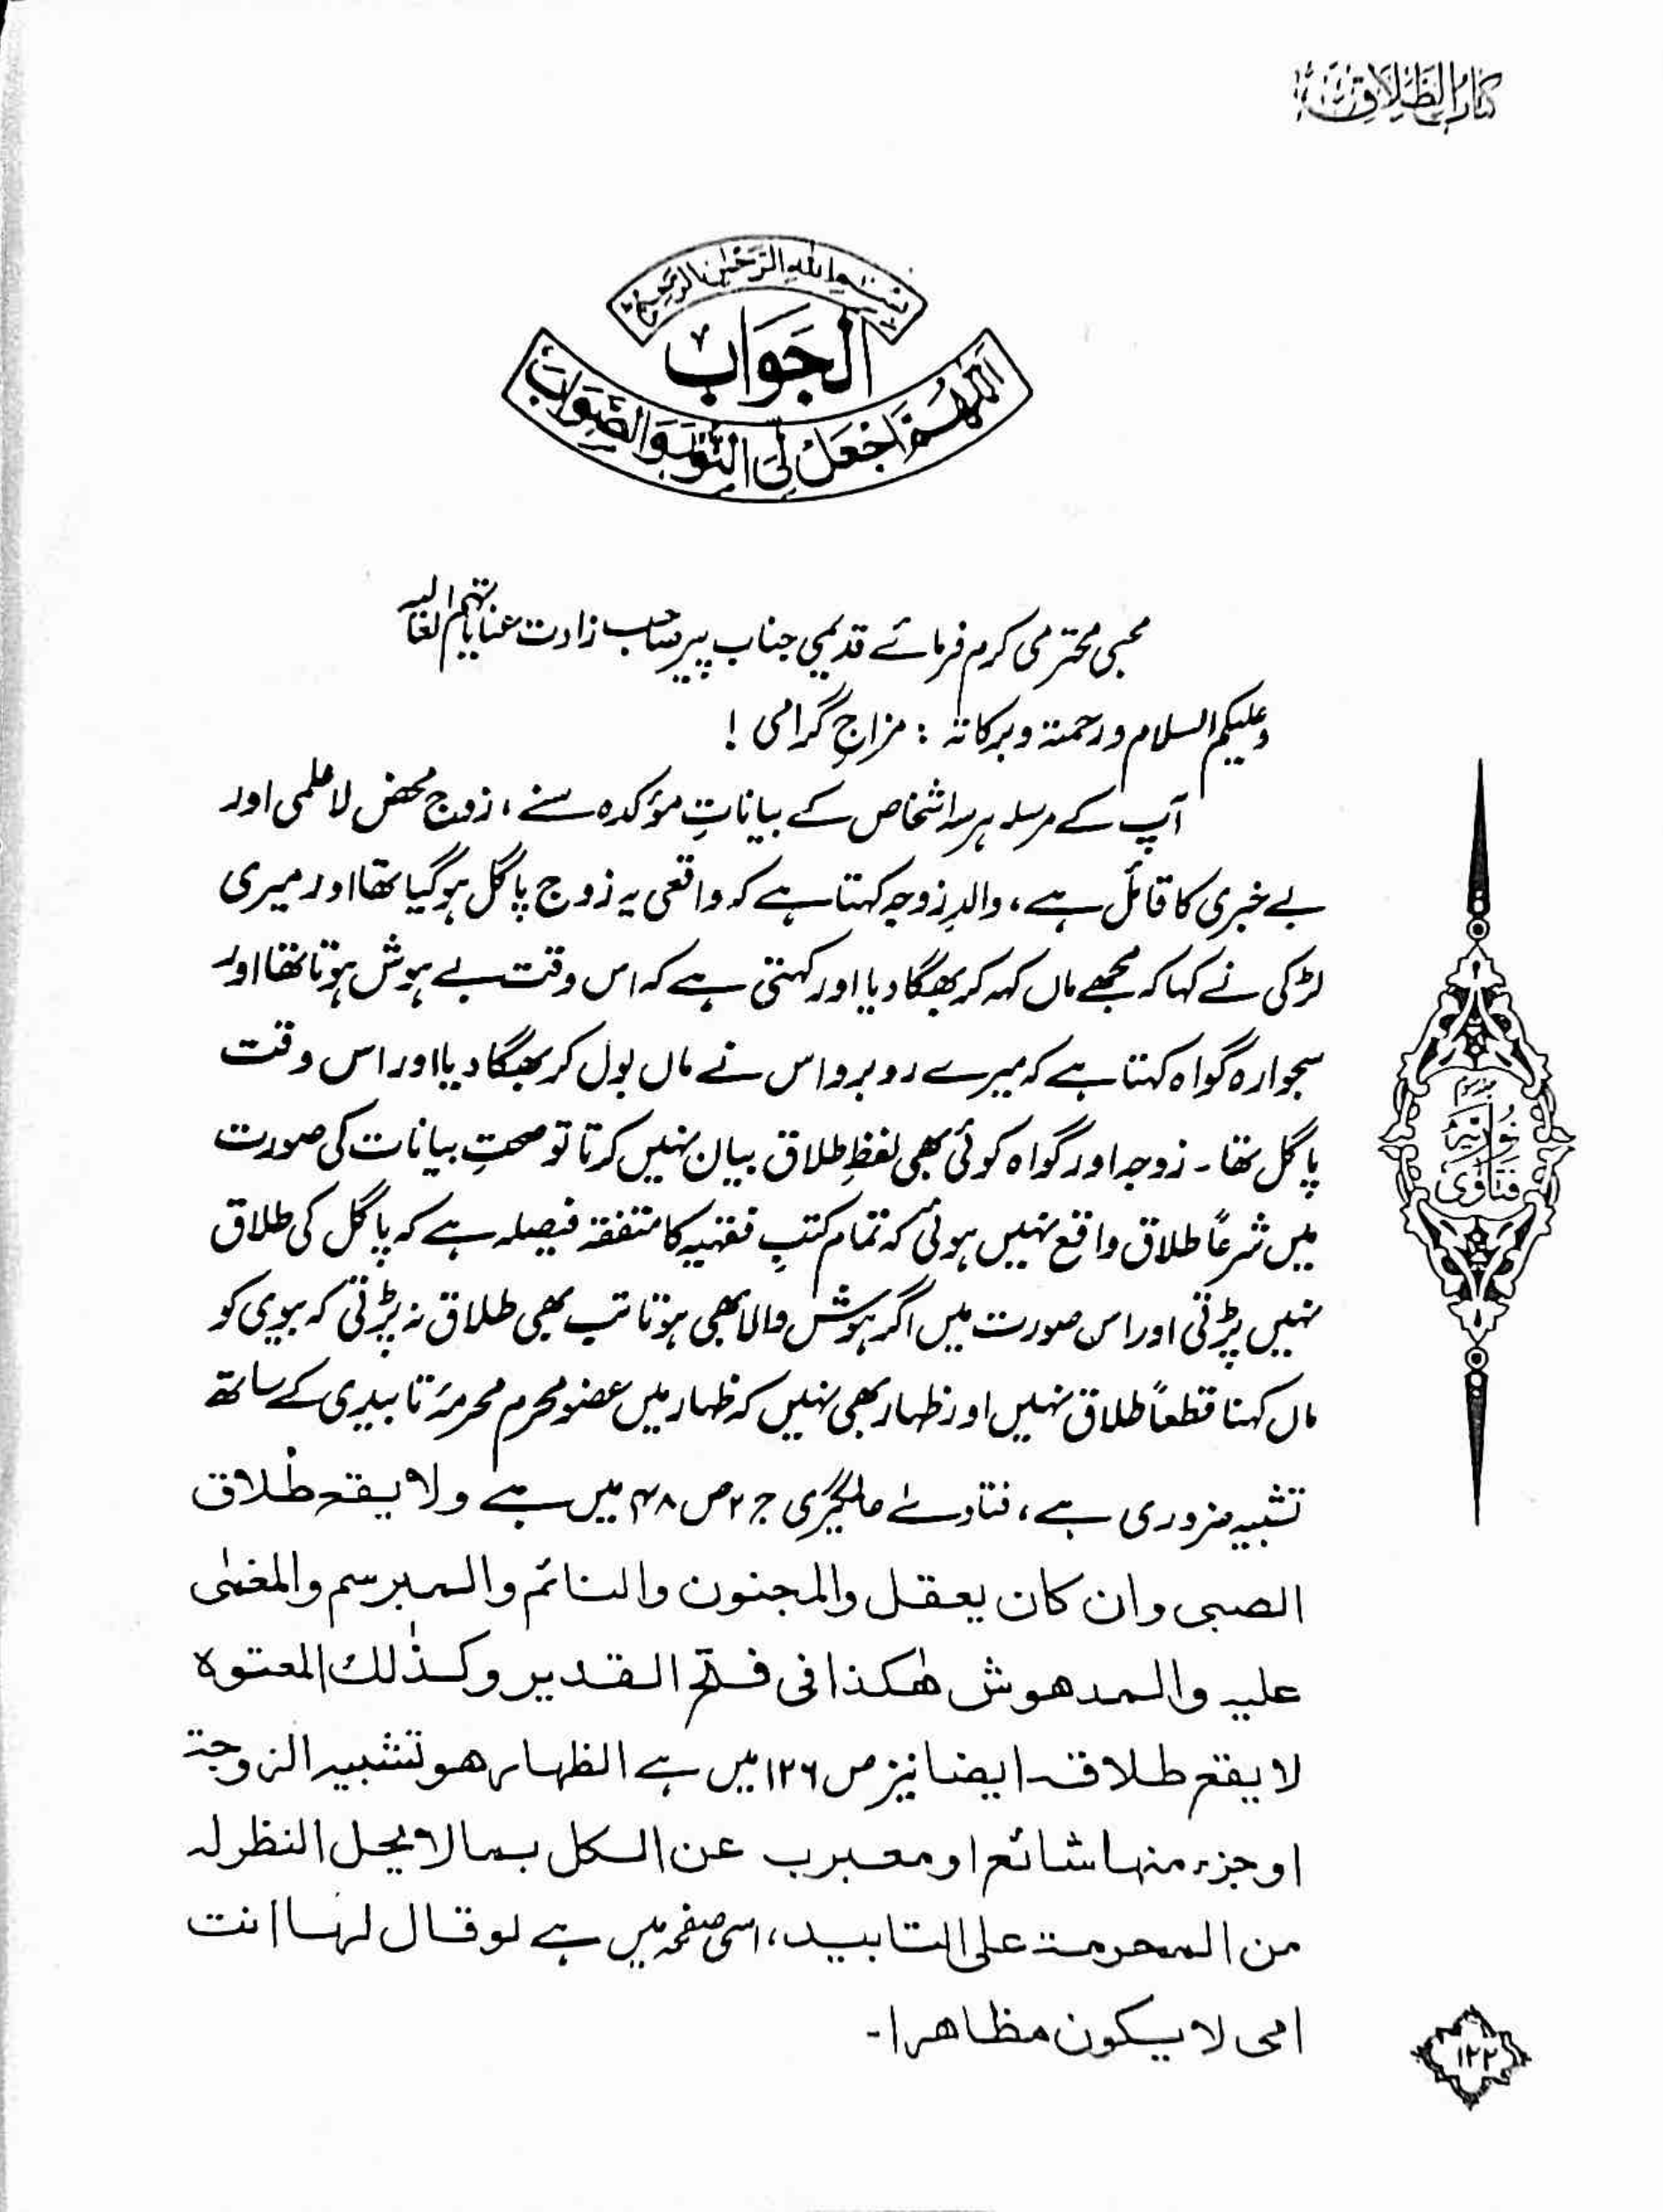 کتاب الطلاق
بسم الله الرحمن الرحيم
الجواب
اللهم اجعل لی النور والصواب
محبی محترمی کرم فرمائے قدیمی جناب پیر صاحب زادت عنایاتہم العالیہ
وعلیکم السلام ورحمتہ وبرکاتہ : مزاجِ گرامی !
آپ کے مرسلہ ہر سہ اشخاص کے بیاناتِ مؤکدہ سنے، زوج محض لاعلمی اور
بے خبری کا قائل ہے، والدِ زوجہ کہتا ہے کہ واقعی یہ زوج پاگل ہوگیا تھا اور میری
لڑکی نے کہا کہ مجھے ماں کہہ کر بھگا دیا اور کہتی ہے کہ اس وقت بے ہوش ہوتا تھا اور
سجوارہ گواہ کہتا ہے کہ میرے روبرو اس نے ماں بول کر بھگا دیا اور اس وقت
پاگل تھا۔ زوجہ اور گواہ کوئی بھی لفظِ طلاق بیان نہیں کرتا تو صحتِ بیانات کی صورت
میں شرعاً طلاق واقع نہیں ہوئی کہ تمام کتبِ فقہیہ کا متفقہ فیصلہ ہے کہ پاگل کی طلاق
نہیں پڑتی اور اس صورت میں اگر ہوش والا بھی ہوتا تب بھی طلاق نہ پڑتی کہ بیوی کو
ماں کہنا قطعاً طلاق نہیں اور ظہار بھی نہیں کہ ظہار میں عضو محرم محرمۂ تابیدی کے ساتھ
تشبیہ ضروری ہے، فتاوے عالمگیری ج ۲ ص ۴۸ میں ہے ولا یقع طلاق
الصبی وان کان یعقل والمجنون والنائم والمبرسم والمغمٰی
علیہ والمدھوش ھٰکذا فی فتح القدیر وکذٰلك المعتوہ
لا یقع طلاقہ ایضا نیز ص ۱۲۶ میں ہے الظہار ھو تشبیہ الزوجۃ
او جزء منہا شائع او معبر بہ عن الکل بما لا یحل النظر لہ
من المحرمۃ علی التابید، اسی صفحہ میں ہے لو قال لہا انت
امی لا یکون مظاھرا۔
فتاوی نوریہ
۱۲۲